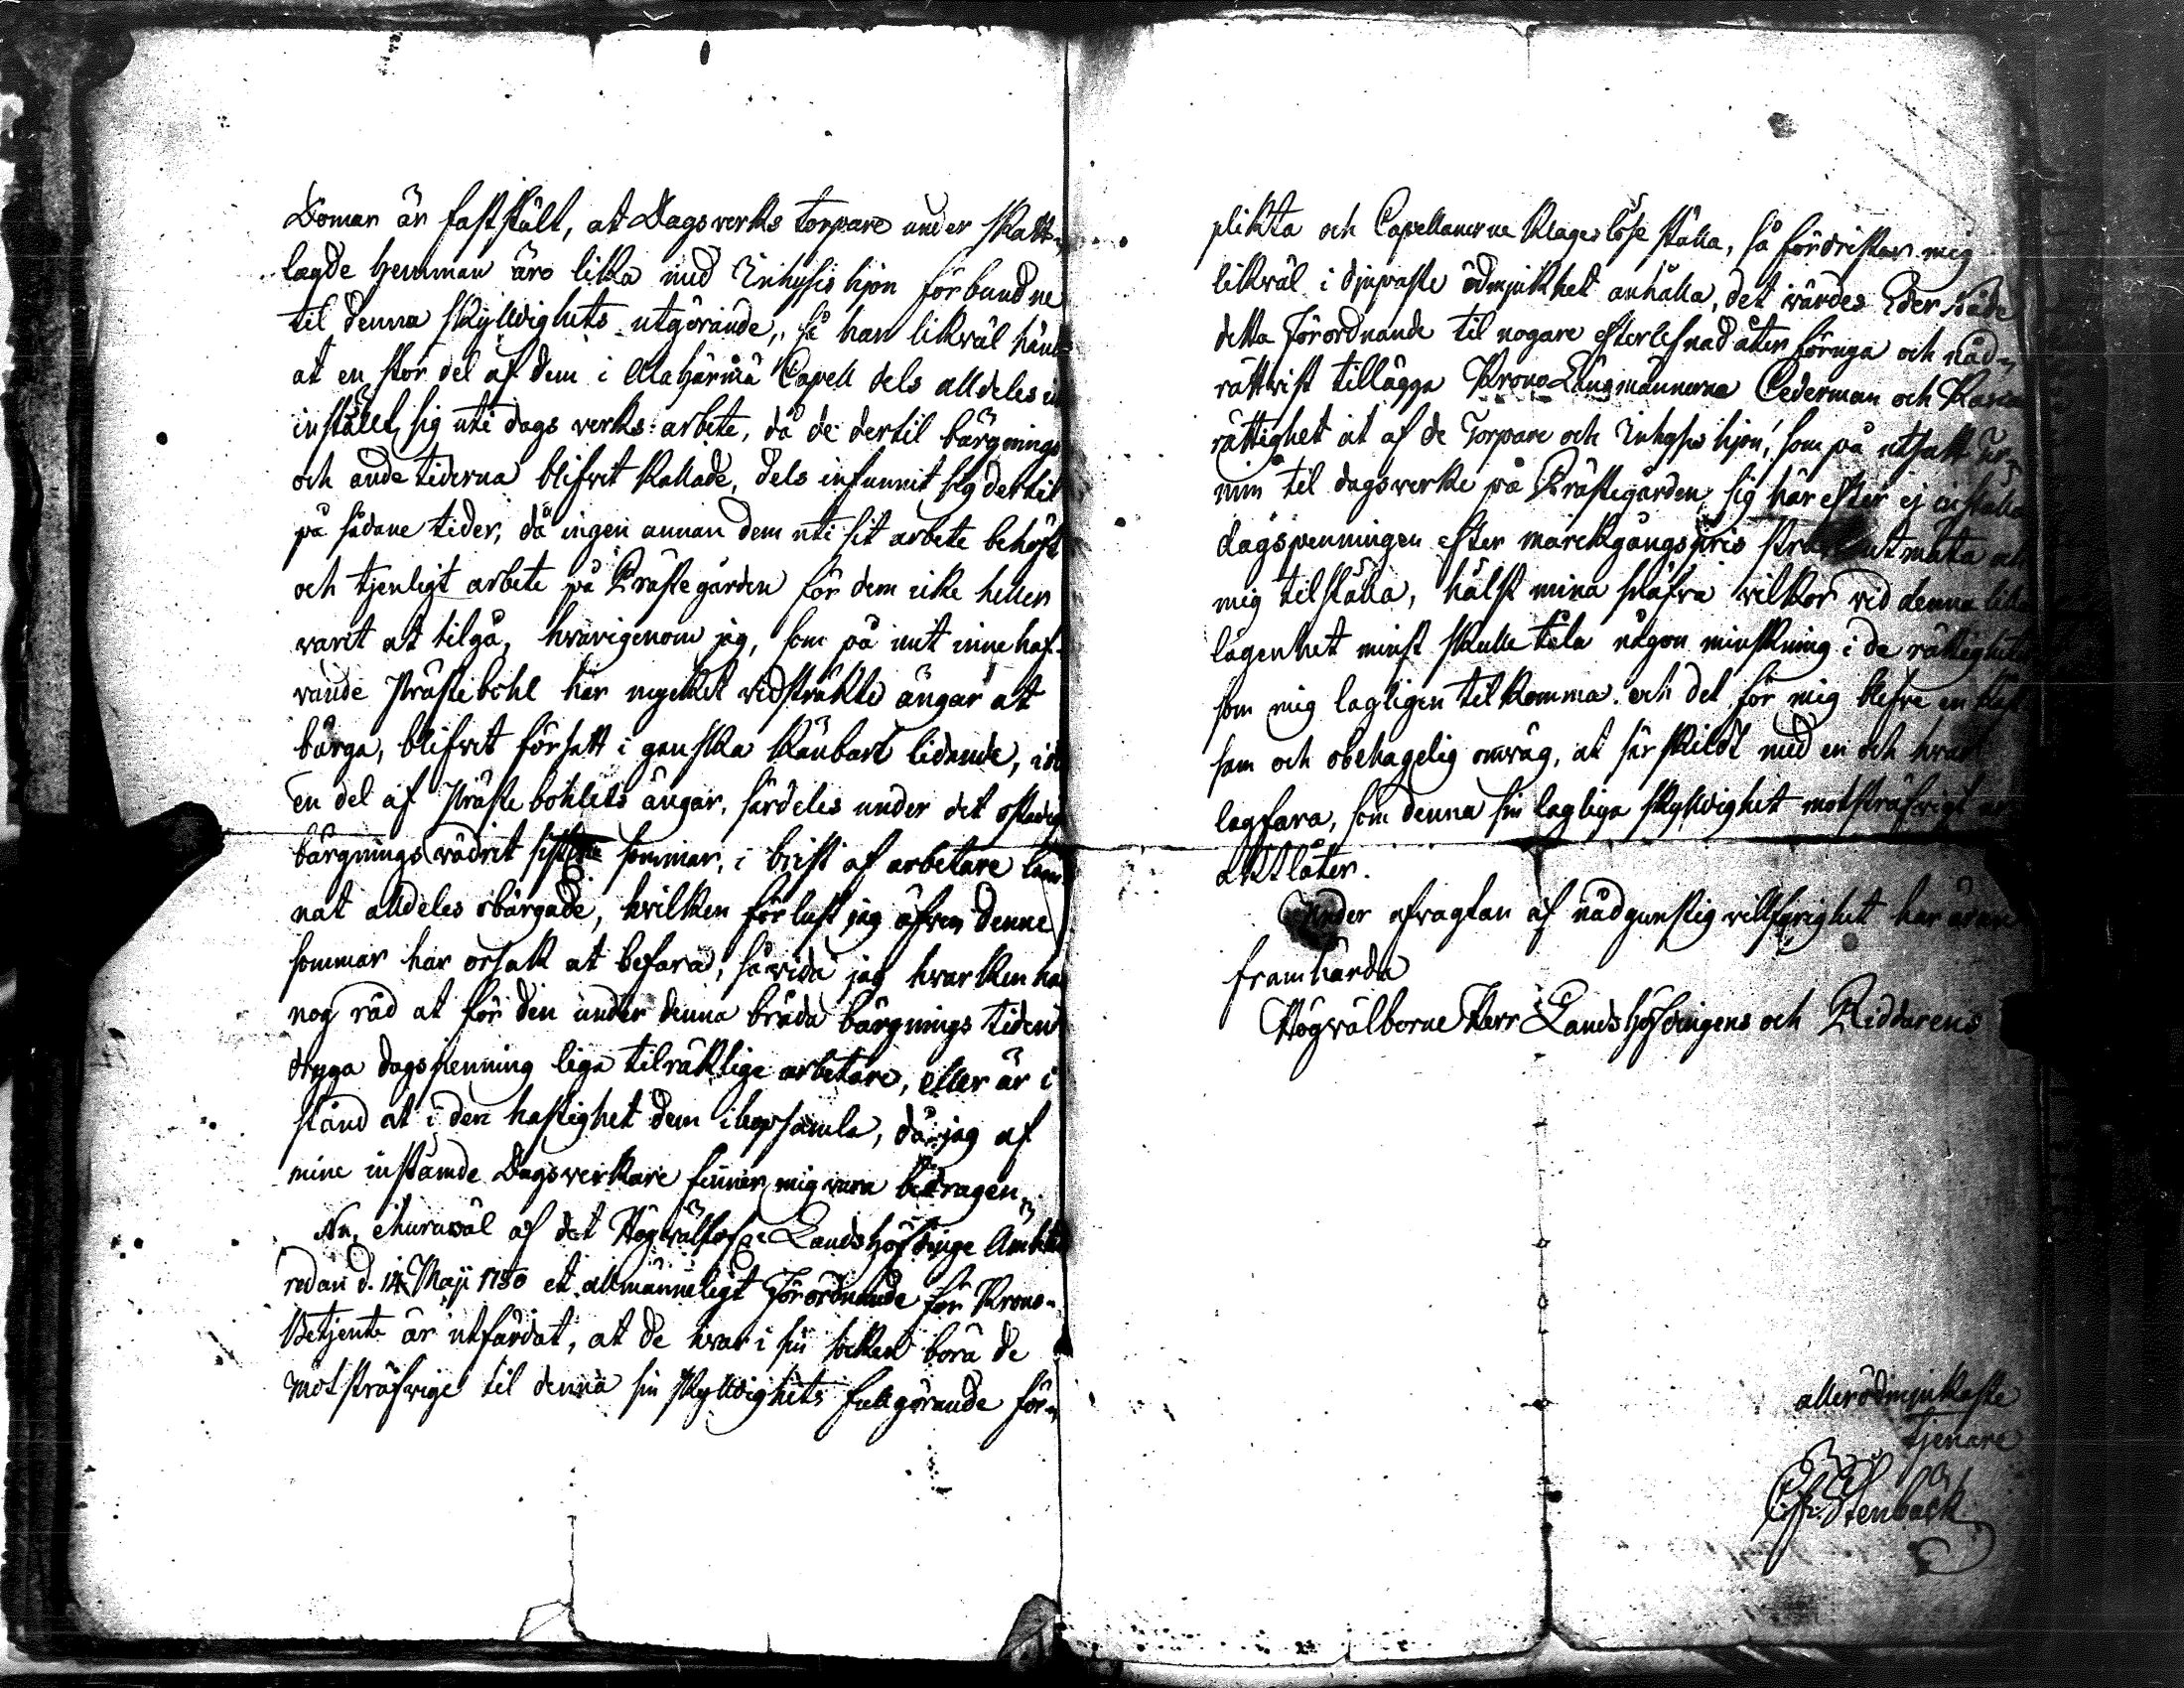 Domar är fastStält, at Dagsverks torpare under Skatt-
lagde Hemman äro lika med Inhysis hjon förbundne
til denna Skylldighets utgörande, så har likwäl händt
at en stor del af dem i Alahärmä Capell dels alldeles
instält sig uti dags verks arbete, då de dertil bärgnings
och ande tiderna blifvit kallade, dels infunnit sig dertil
på sådane tider, då ingen annan dem uti sit arbete behöft
och tjenligt arbete på Prästegården för dem icke heller
warit at tilgå, hwarigenom jag, som på mit innehaf-
vande Prästebohl har mycket widsträkte ängar at
bärga, blifvit försatt i ganska känbart lidande, i det
en del af Prästebohlets ängar, särdeles under det ostadiga
bärgnings wädret sistl. sommar, i brist af arbetare läm-
nat alldeles obärgade, hvilken förlust jag äfven denne
sommar har orsak at befara, såvida jag hwarken har
nog råd at för den under denna bråda bärgnings tiden
dryga dagspenning lega tilräklige arbetare, eller är i
stånd at i den hastighet dem ihopsamla, då jag af
mine instämde Dagsverkare finner mig vara bedragen.
Nu, ehuruwäl af det Högwällofl. Landshöfdinge Ämbetet
redan d. 14 Maji 1780 et allmänneligt Förordnande för Krono-
Betjente är utfärdat, at de hvar i sin socken böra de
motsträfvige til denna sin Skylldighets fullgörande för-
plikta och Capellanerne klagelöse ställa, så fördristar mig
likväl i djupaste ödmjukhet anhålla, det wärdes Eder Nåde
detta Förordnande til nogare efterlefnad åter förnya och nåd-
rättvist tillägga Krono Länsmännerna Cederman och
rättighet at af de Torpare och Inhyses hjon, som på utsatt ter-
min til dagsverke på Prästegården sig här efter ej inställa
dagspenningen efter markegångspris strax utmäta och
mig tilställa, hälst mina knäfva wilkor vid denna lilla
lägenhet minst skulle tåla någon minskning i de rättigheter
som mig lagligen tilkomma. och det för mig blefve en
sam och obehagelig omväg, at särskildt med en och hvar
lagfara, som denna sin lagliga skyldighet motsträfvigt
aktlåter.
Under afvagtan af nådgunstig willfarighet har äran
framhärda
Högwälborne Herr Landshöfdingens och Riddarens
allerödmjukaste
tjenare
C. Fr. Stenbäck